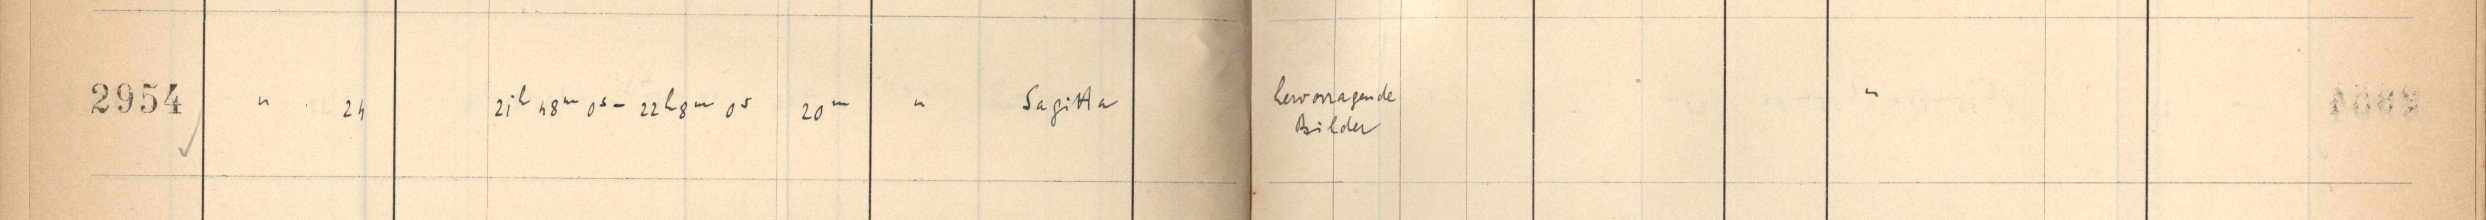 2954 " 24 21h 48m 0s – 22h 8m 0s 20m " Sagitta hervorragende "
Bilder